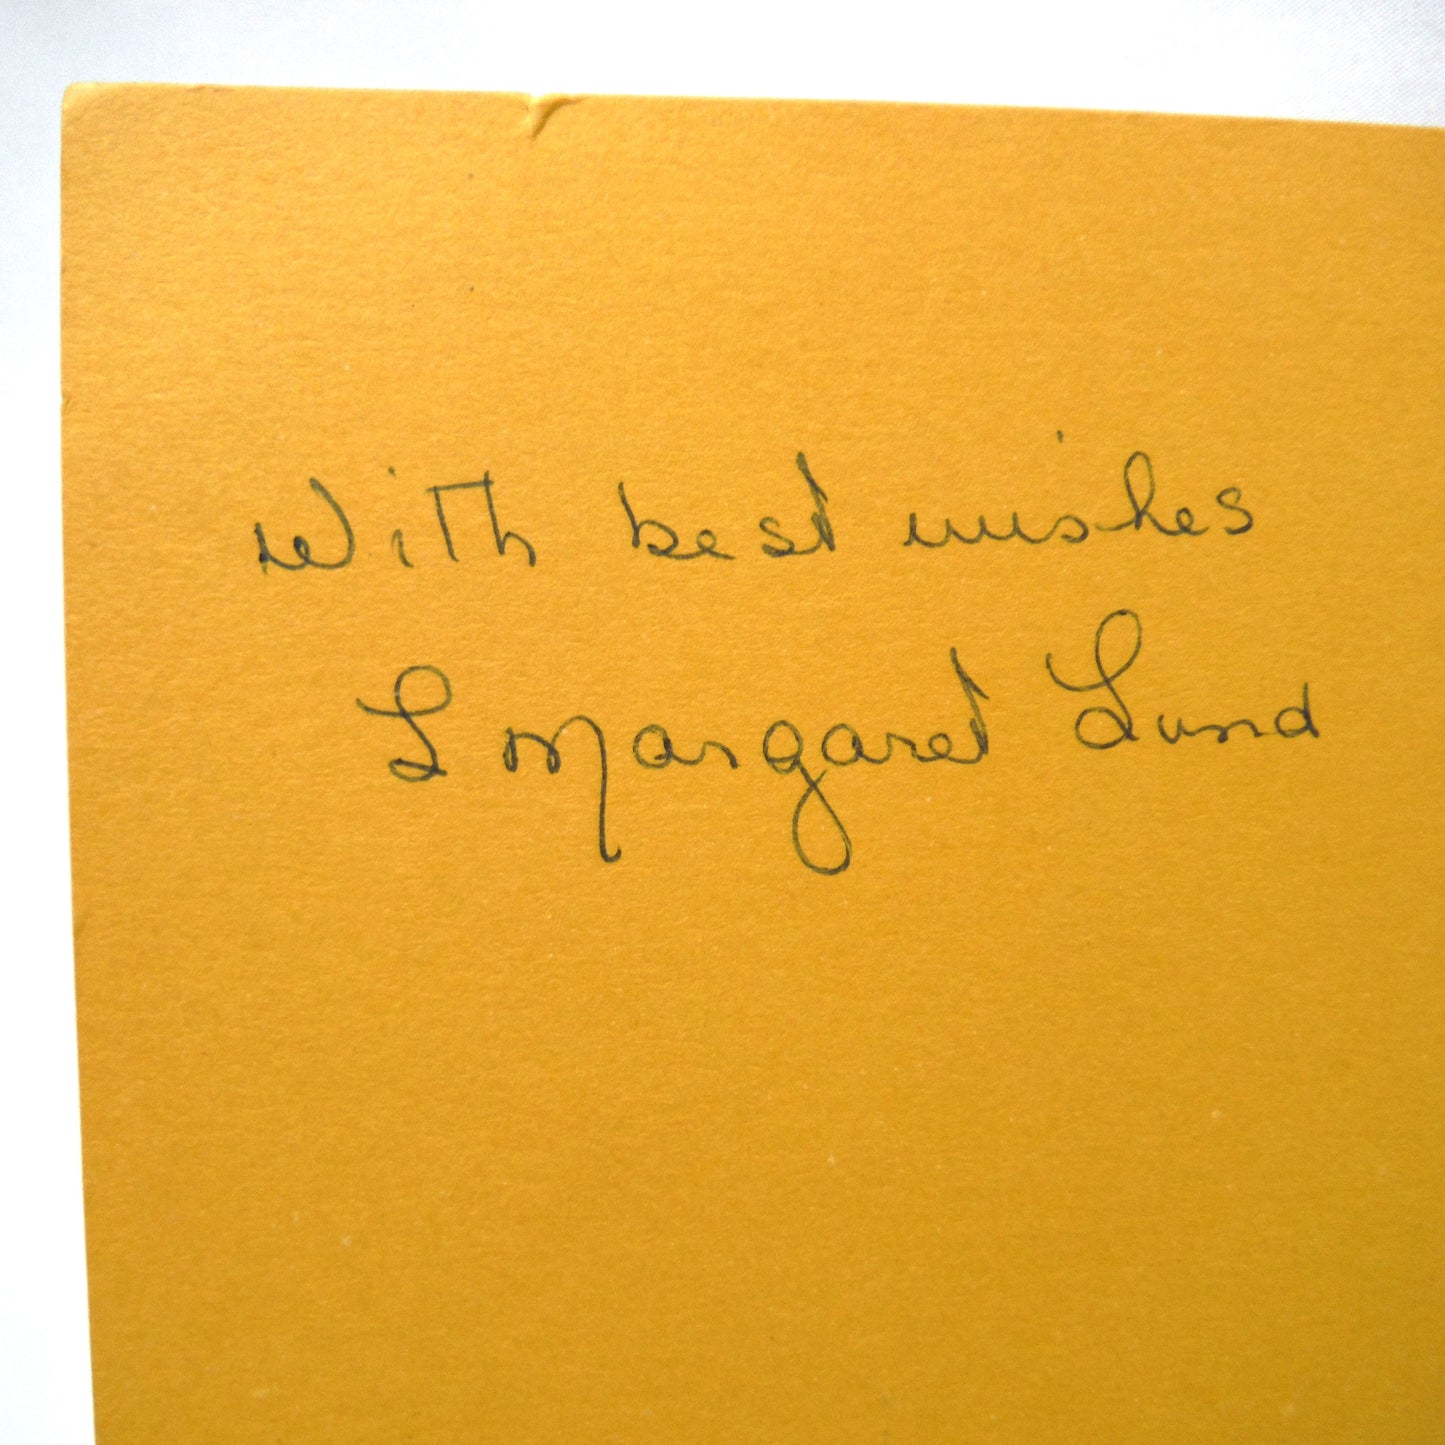 With best wishes
L Margaret Lund